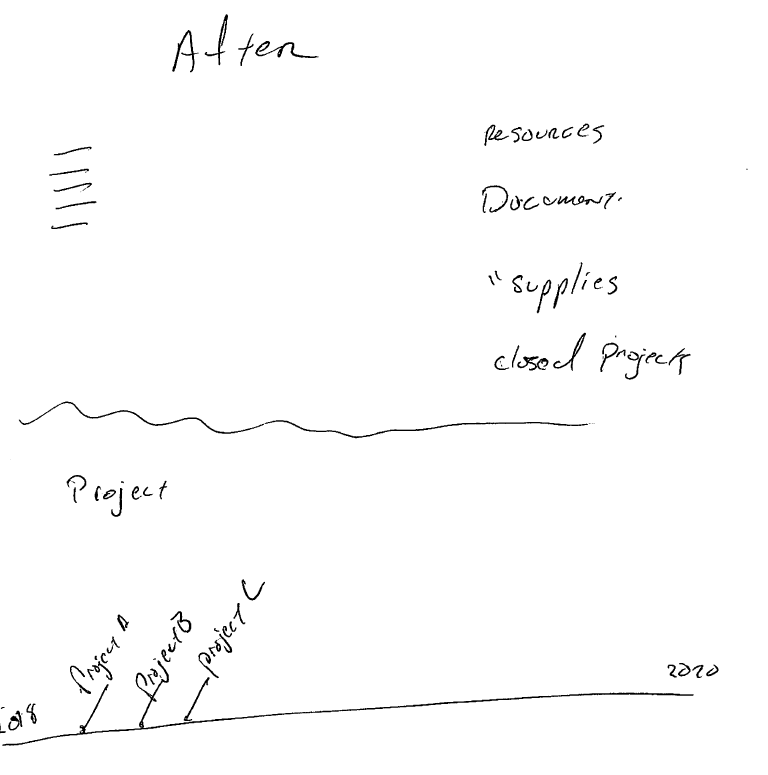 After
Resources
Document.
"supplies
closed projects
Project
Project A
Project B
project C
2018
2020